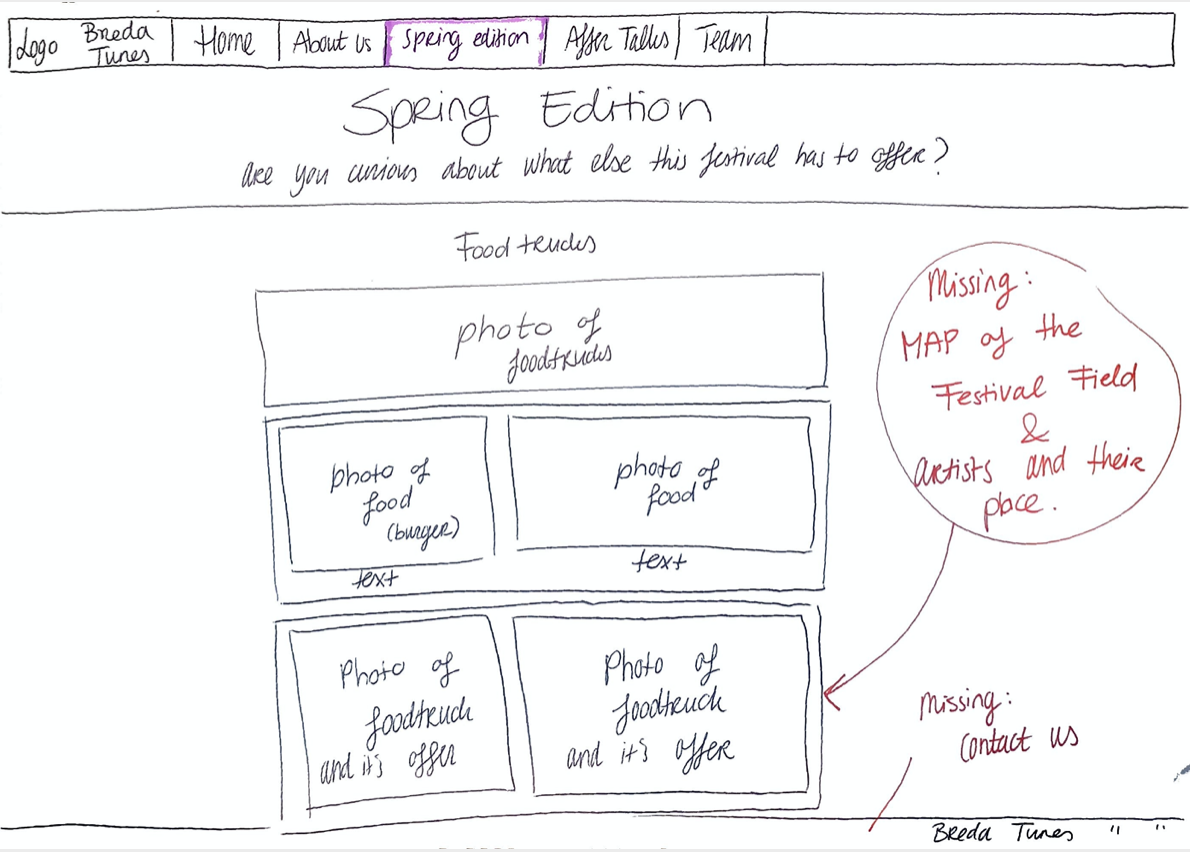 Logo Breda Tunes
Home
About Us
Spring edition
After Talks
Team
Spring Edition
are you curious about what else this festival has to offer?
Foodtrucks
photo of
foodtrucks
photo of
food
(burger)
text
photo of
food
text
Photo of
foodtruck
and it's offer
Photo of
foodtruck
and it's offer
Missing:
MAP of the
Festival Field
&
artists and their
place.
Missing:
Contact us
Breda Tunes " "